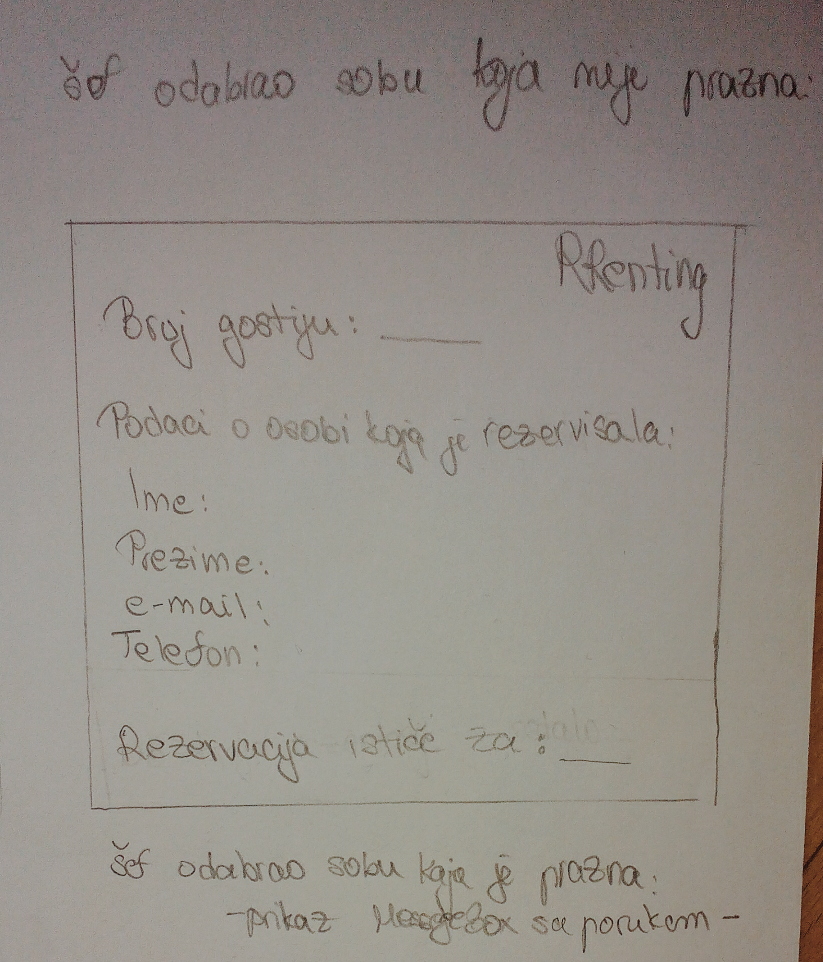 šef odabrao sobu koja nije prazna:
RRenting
Broj gostiju: ____
Podaci o osobi koja je rezervisala:
Ime:
Prezime:
e-mail:
Telefon:
Rezervacija ističe za: ___
šef odabrao sobu koja je prazna:
-prikaz MessageBox sa porukom-